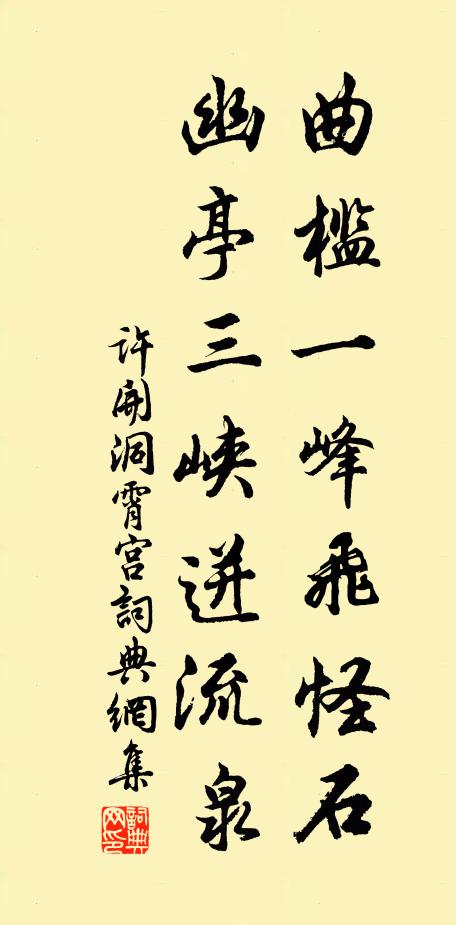 曲槛一峰飛怪石
幽亭三峡迸流泉
许開洞霄宫詞典網集
詞典网印